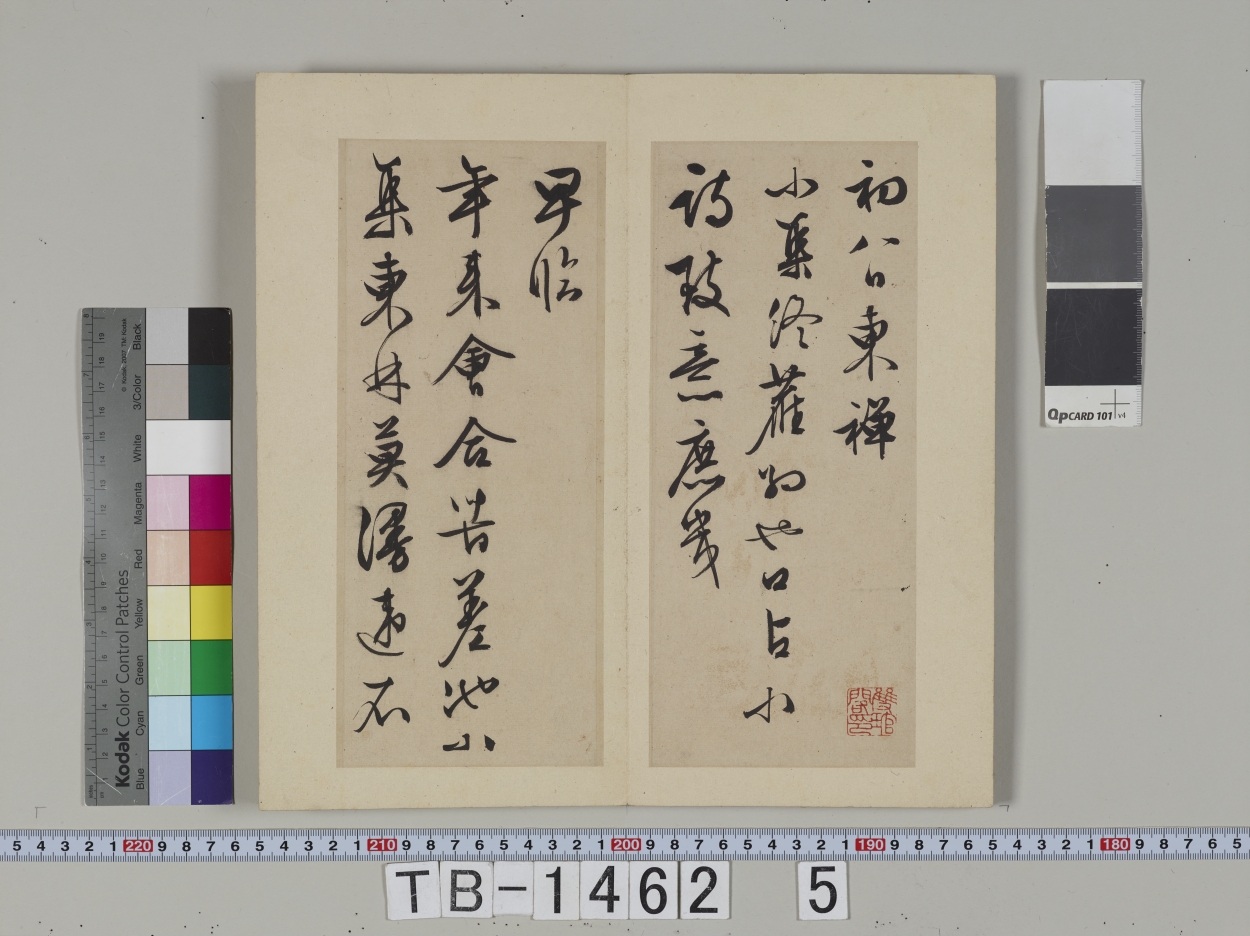 初八日東禪
小集終舊約也口占小
詩致意庶幾
早臨
年来會合苦差池小
集東林莫漫違石
QpCARD 101 v4
Kodak Color Control Patches
© Kodak, 2007 TM: Kodak
Blue Cyan Green Yellow Red Magenta White 3/Color Black
5 4 3 2 1 220 9 8 7 6 5 4 3 2 1 210 9 8 7 6 5 4 3 2 1 200 9 8 7 6 5 4 3 2 1 190 9 8 7 6 5 4 3 2 1 180 9 8 7 6 5
TB-1462 5